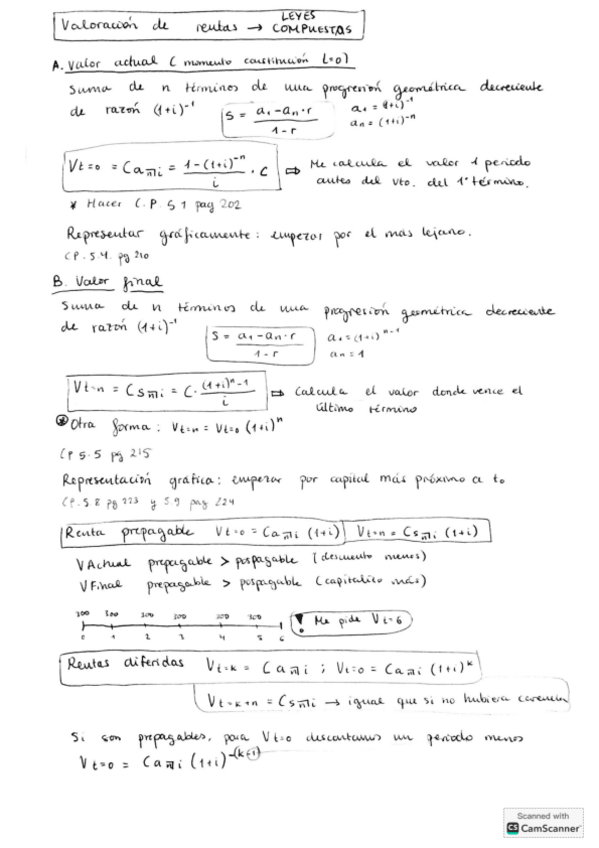 Valoración de rentas → LEYES COMPUESTAS
A. Valor actual (momento constitución t=0)
Suma de n términos de una progresión geométrica decreciente
de razón (1+i)⁻¹ S = (a₁ - aₙ · r) / (1 - r) a₁ = (1+i)⁻¹
aₙ = (1+i)⁻ⁿ
Vt=0 = C a n̅ i = (1-(1+i)⁻ⁿ) / i · C ⇨ Me calcula el valor 1 periodo
antes del vto. del 1º término.
* Hacer C.P. 5 1 pag 202
Representar gráficamente: empezar por el más lejano.
CP. 5.4. pg 210
B. Valor final
Suma de n términos de una progresión geométrica decreciente
de razón (1+i)⁻¹ S = (a₁ - aₙ · r) / (1 - r) a₁ = (1+i)ⁿ⁻¹
aₙ = 1
Vt=n = C s n̅ i = C · ((1+i)ⁿ - 1) / i ⇨ Calcula el valor donde vence el
último término
* Otra forma: Vt=n = Vt=0 (1+i)ⁿ
CP 5.5 pg 215
Representación gráfica: empezar por capital más próximo a t₀
CP. 5.8 pg 223 y 5.9 pag 224
Renta prepagable Vt=0 = C a n̅ i (1+i) Vt=n = C s n̅ i (1+i)
V Actual prepagable > pospagable (descuento menos)
V Final prepagable > pospagable (capitalizo más)
300 300 300 300 300 300
0 1 2 3 4 5 6
! Me pide Vt=6
Rentas diferidas Vt=k = C a n̅ i ; Vt=0 = C a n̅ i (1+i)ᵏ
Vt=k+n = C s n̅ i → igual que si no hubiera carencia
Si son prepagables, para Vt=0 descontamos un periodo menos
Vt=0 = C a n̅ i (1+i)⁻⁽ᵏ⁺¹⁾
Scanned with
CS CamScanner